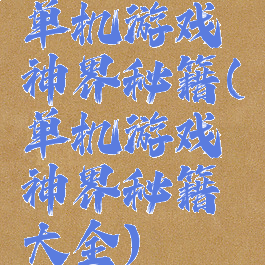 单机游戏
神界秘籍(
单机游戏
神界秘籍
大全)